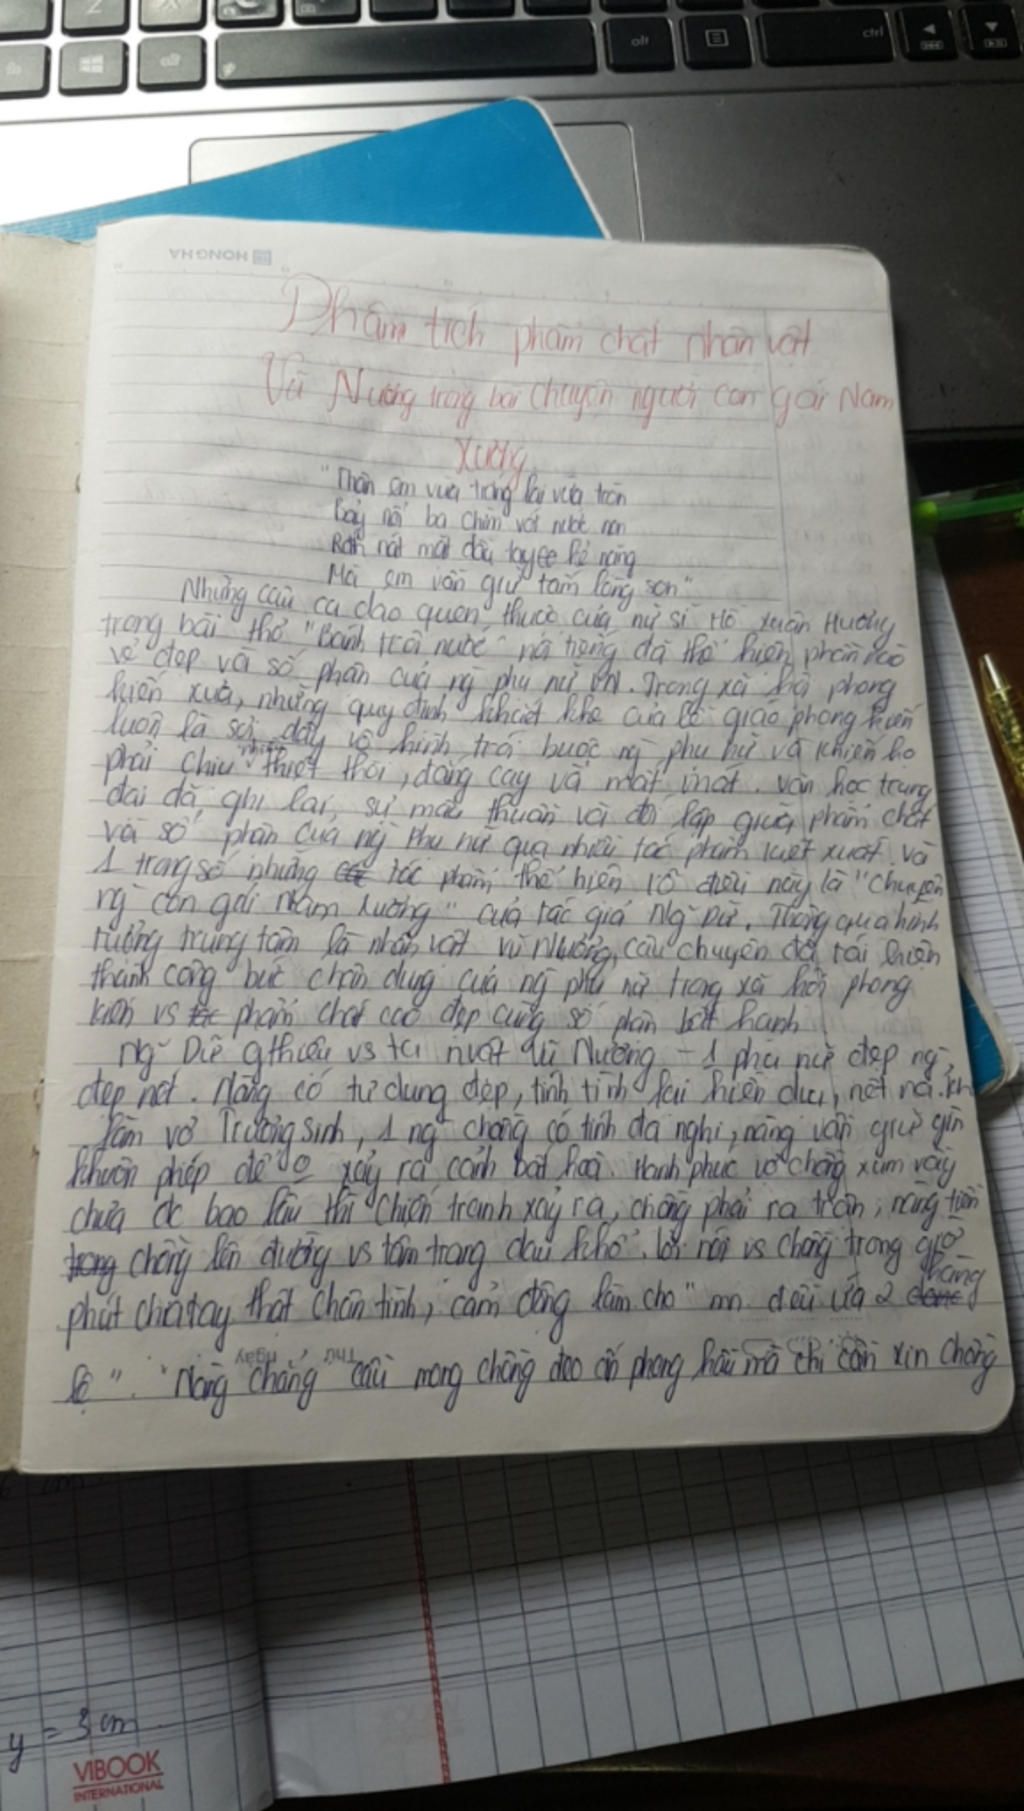 alt
ctrl
HONG HA
Phân tích phẩm chất nhân vật
Vũ Nương trong bài chuyện người con gái Nam
Xương
"Thân em vừa trắng lại vừa tròn
Bảy nổi ba chìm với nước non
Rắn nát mặc dầu tay kẻ nặng
Mà em vẫn giữ tấm lòng son"
Những câu ca dao quen thuộc của nữ sĩ Hồ Xuân Hương
trong bài thơ "Bánh trôi nước" nổi tiếng đã thể hiện phần nào
vẻ đẹp và số phận của ng phụ nữ VN. Trong xã hội phong
kiến xưa, những quy định khắt khe của lễ giáo phong kiến
luôn là sợi dây vô hình trói buộc ng phụ nữ và khiến họ
phải chịu nhiều thiệt thòi, đắng cay và mất mát. Văn học trung
đại đã ghi lại sự mâu thuẫn và đối lập giữa phẩm chất
và số phận của ng phụ nữ qua nhiều tác phẩm kiệt xuất. và
1 trong số những tác phẩm thể hiện rõ điều này là "Chuyện
ng con gái Nam Xương" của tác giả Ng Dữ. Thông qua hình
tượng trung tâm là nhân vật Vũ Nương, câu chuyện đã tái hiện
thành công bức chân dung của ng phụ nữ trong xã hội phong
kiến vs phẩm chất cao đẹp cùng số phận bất hạnh
Ng Dữ gthiệu vs ta nvật Vũ Nương - 1 phụ nữ đẹp ng
đẹp nết. Nàng có tư dung đẹp, tính tình lại hiền dịu, nết na. Kh
làm vợ Trương Sinh, 1 ng chồng có tính đa nghi, nàng vẫn giữ gìn
khuôn phép để 0 xảy ra cảnh bất hoà. Hạnh phúc vợ chồng xum vầy
chưa đc bao lâu thì chiến tranh xảy ra, chồng phải ra trận, nàng tiễn
chồng lên đường vs tâm trạng đau khổ. lời nói vs chồng trong giờ
phút chia tay thật chân tình, cảm động làm cho "mn đều ứa 2 hàng
lệ". "Nàng chẳng cầu mong chồng đeo ấn phong hầu mà chỉ cần xin chồng
Thứ Ngày
y = 3 cm
VIBOOK
INTERNATIONAL